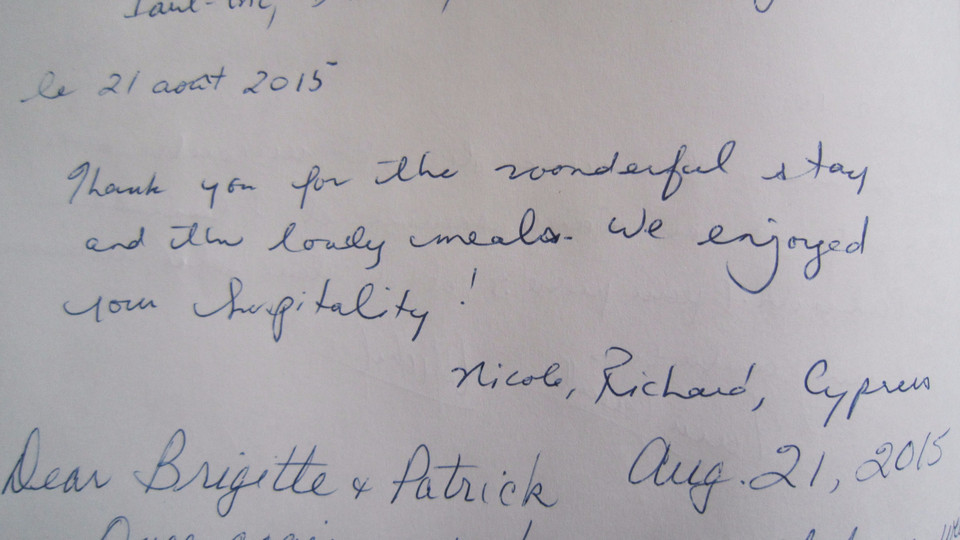 le 21 août 2015
Thank you for the wonderful stay
and the lovely meals. We enjoyed
your hospitality!
Nicole, Richard, Cypress
Dear Brigitte & Patrick Aug. 21, 2015